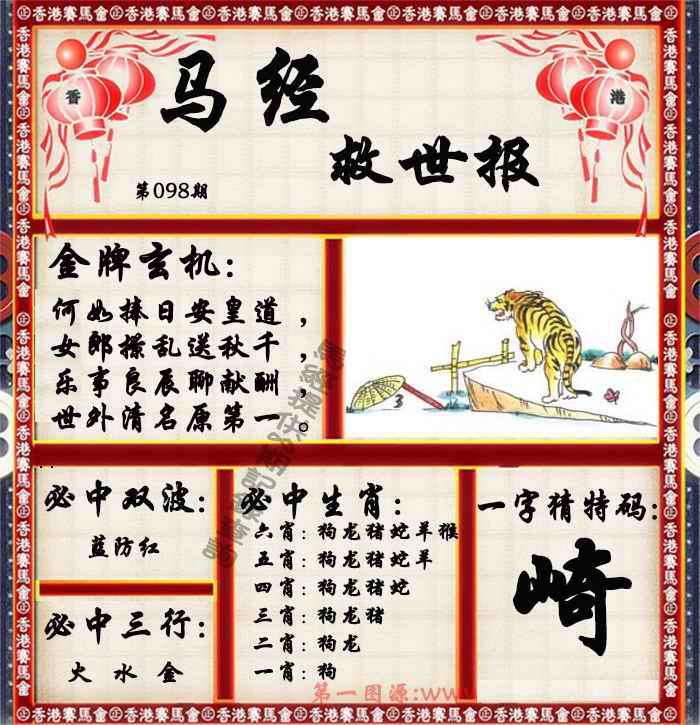 香港賽馬會㊣香港賽馬會㊣香港賽馬會㊣香港賽馬會
香 港
马经
救世报
第098期
金牌玄机:
何如捧日安皇道,
女郎撩乱送秋千,
乐事良辰聊献酬,
世外清名原第一。
3
必中双波:
蓝防红
必中三行:
火 水 金
必中生肖:
六肖:狗龙猪蛇羊猴
五肖:狗龙猪蛇羊
四肖:狗龙猪蛇
三肖:狗龙猪
二肖:狗龙
一肖:狗
一字猜特码:
崎
第一图源:www